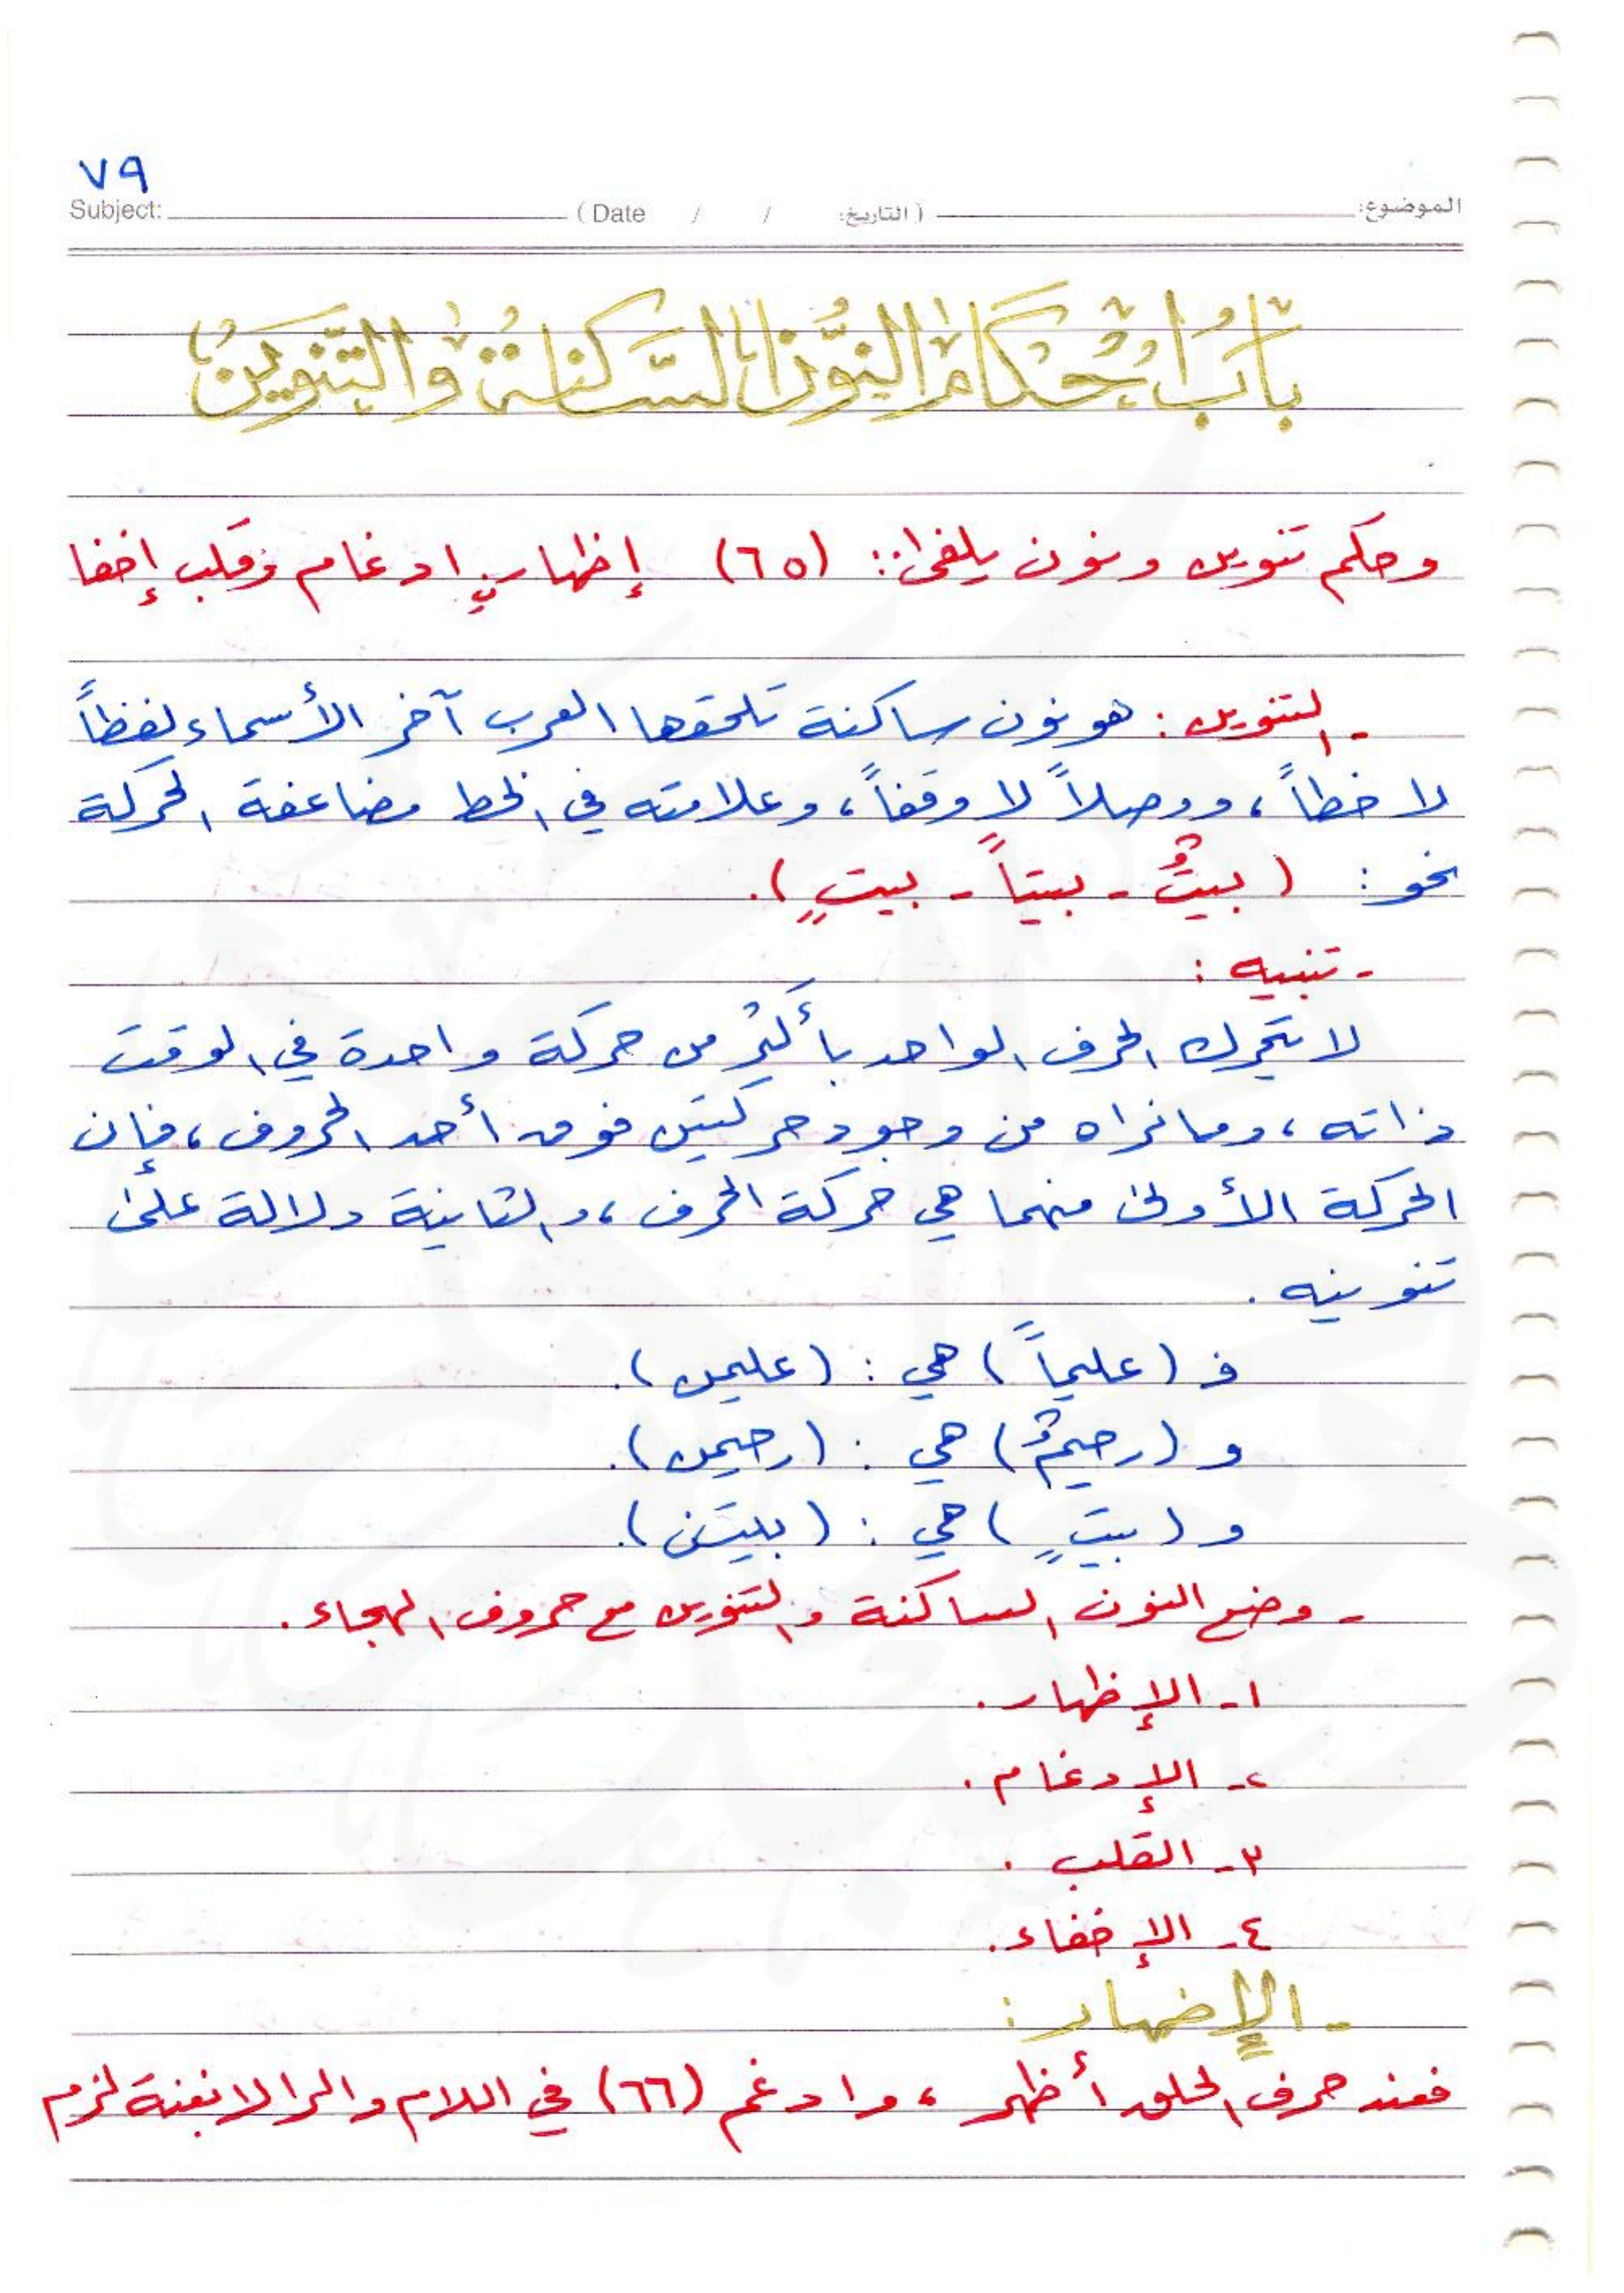 ٧٩
Subject: (Date / / التاريخ:) الموضوع:
بَابُ أَحْكَامِ النُّونِ السَّاكِنَةِ وَالتَّنْوِينِ
وحكم تنوين ونون يلفى: (٦٥) إظهارٌ ادغام وقلب إخفا
- التنوين: هو نون ساكنة تلحقها العرب آخر الأسماء لفظاً
لا خطاً، ووصلاً لا وقفاً، وعلامته في الخط مضاعفة الحركة
نحو: (بيتٌ - بيتاً - بيتٍ).
- تنبيه:
لا يتحرك الحرف الواحد بأكثر من حركة واحدة في الوقت
ذاته، وما نراه من وجود حركتين فوق أحد الحروف، فإن
الحركة الأولى منهما هي حركة الحرف، والثانية دلالة على
تنوينه.
فـ (عليماً) هي: (عليمن).
و (رحيمٌ) هي: (رحيمن).
و (بيتٍ) هي: (بيتن).
- وضع النون الساكنة والتنوين مع حروف الهجاء.
١- الإظهار.
٢- الإدغام.
٣- القلب.
٤- الإخفاء.
- الإضهار:
فعند حرف الحلق أظهر، وادغم (٦٦) في اللام والرا لا بغنة لزم